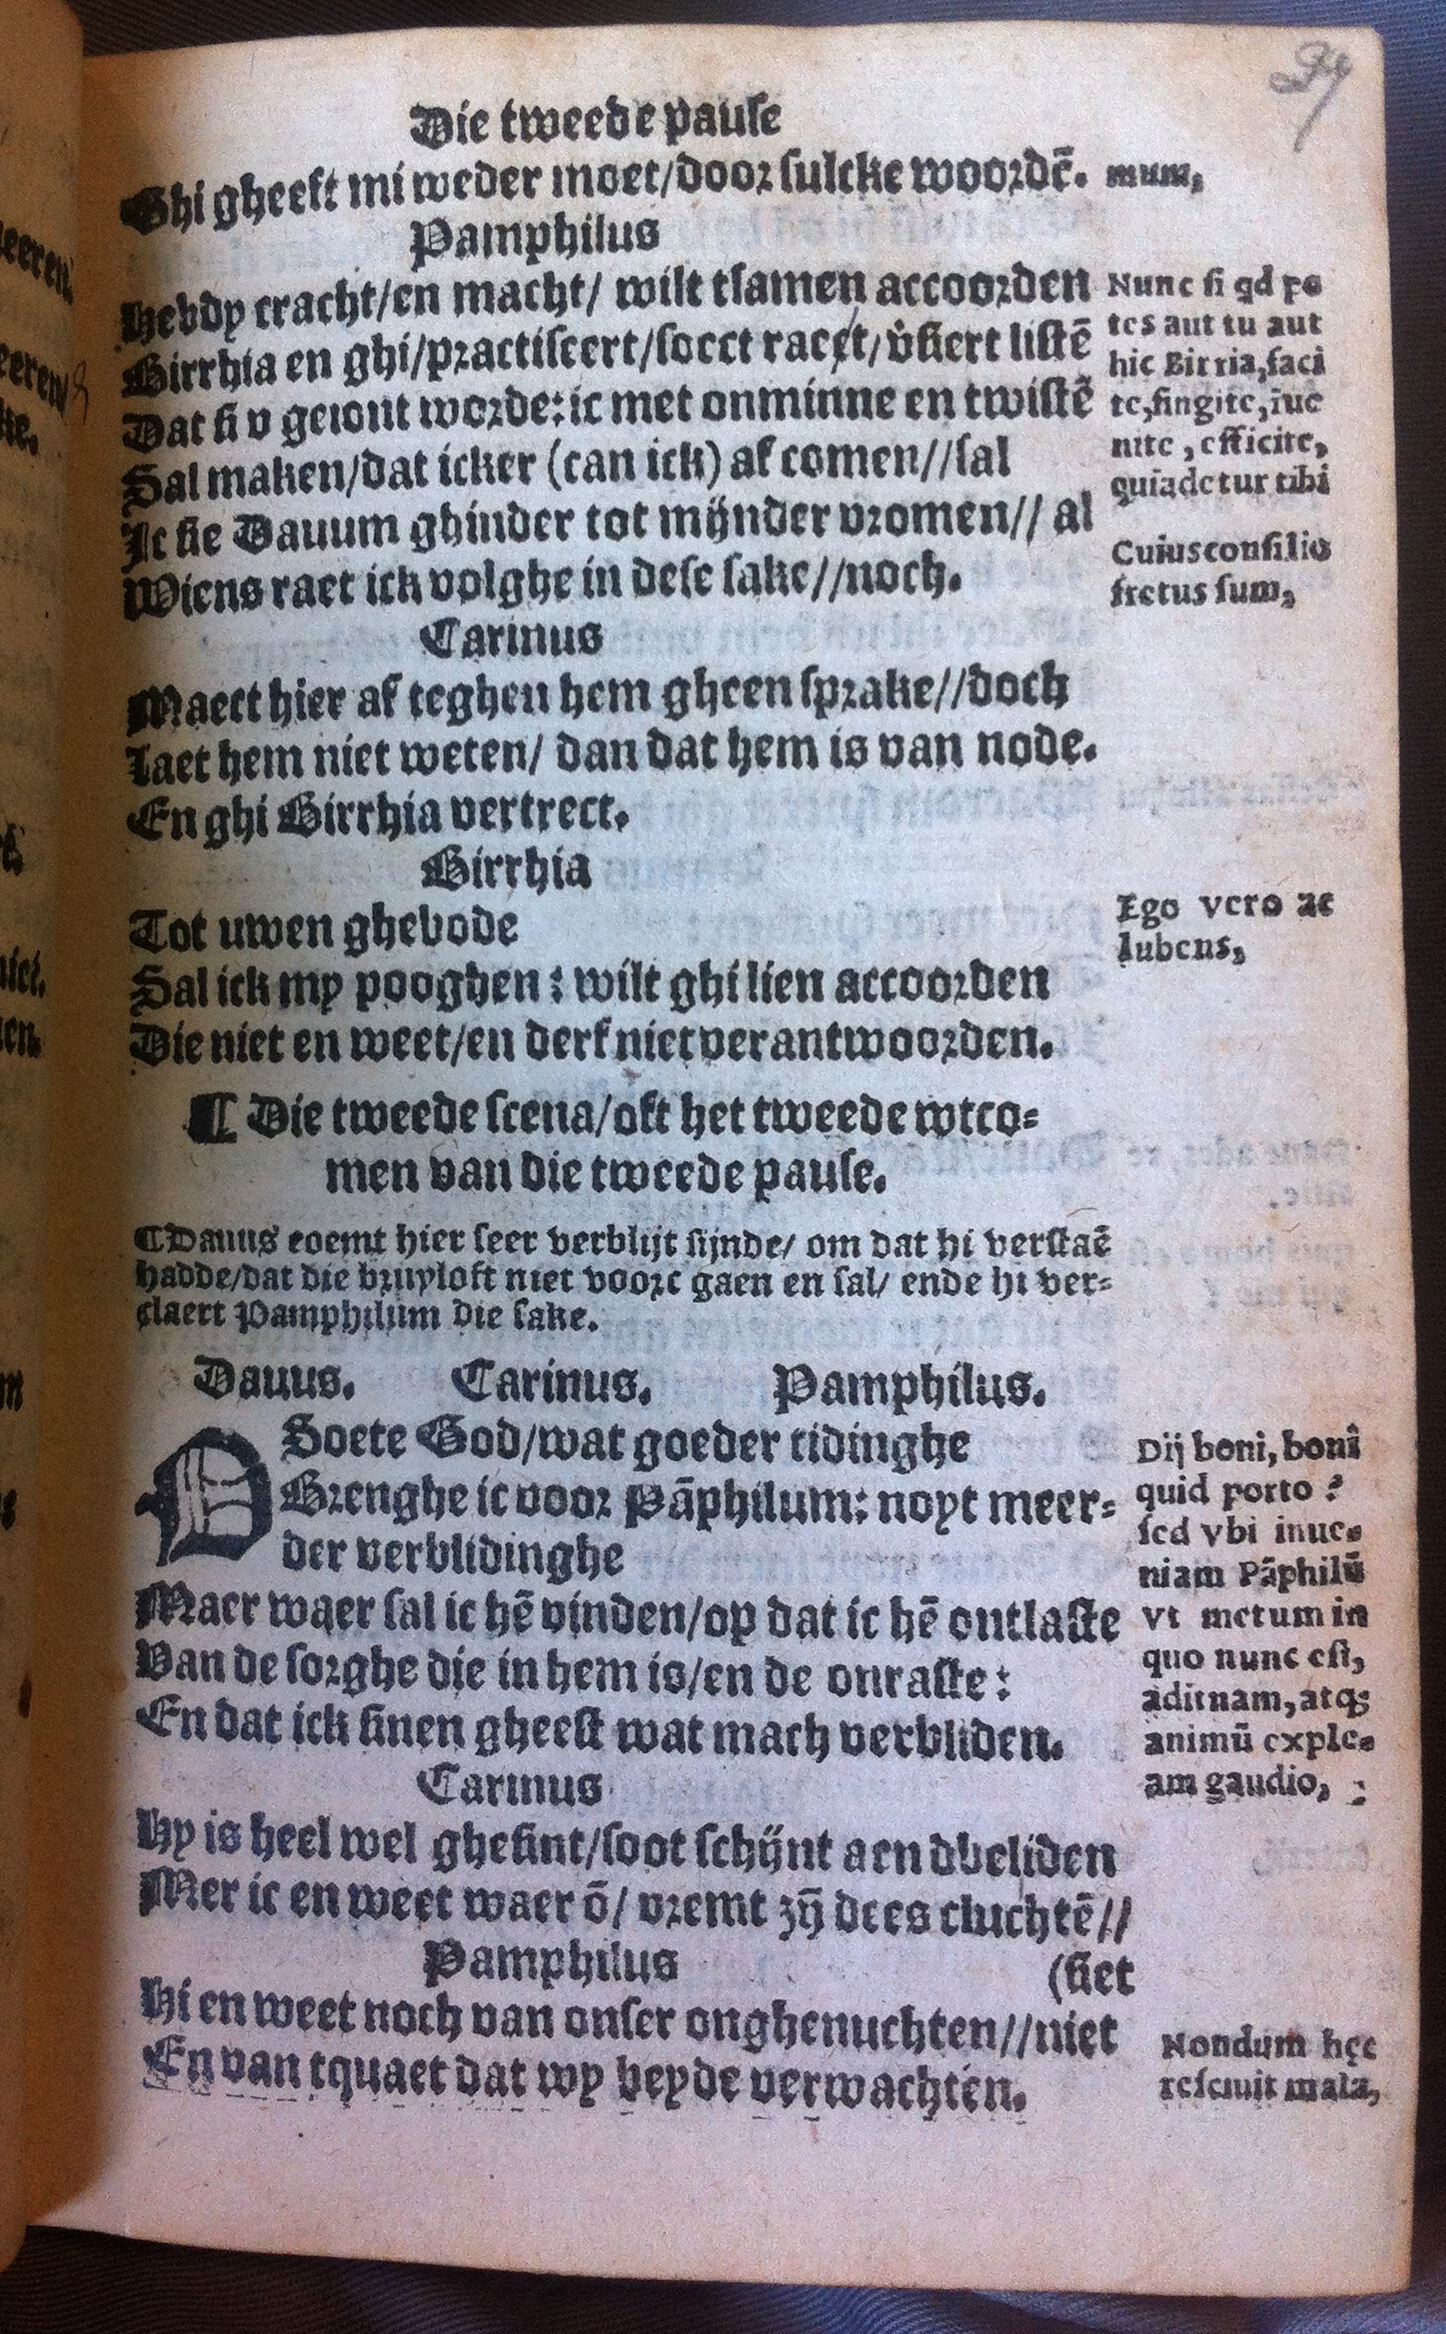 Die tweede pause
Ghi gheeft mi weder moet/door sulcke woordē.
Pamphilus
Hebdy cracht/en macht/ wilt tsamen accoorden
Birrhia en ghi/practiseert/soect raet/v̊siert listē
Dat si v geiont worde: ic met onminne en twistē
Sal maken/dat icker (can ick) af comen//sal
Ic sie Dauum ghinder tot mijnder vromen// al
Wiens raet ick volghe in dese sake//noch.
Carinus
Maect hier af teghen hem gheen sprake//doch
Laet hem niet weten/ dan dat hem is van node.
En ghi Birrhia vertrect.
Birrhia
Tot uwen ghebode
Sal ick my pooghen: wilt ghi lien accoorden
Die niet en weet/en derf niet verantwoorden.
¶ Die tweede scena/oft het tweede wtco=
men van die tweede pause.
¶Dauus coemt hier seer verblijt sijnde/ om dat hi verstaē
hadde/dat die bruyloft niet voort gaen en sal/ ende hi ver=
claert Pamphilum die sake.
Dauus. Carinus. Pamphilus.
O Soete God/wat goeder tidinghe
Brenghe ic voor Pāphilum: noyt meer=
der verblidinghe
Maer waer sal ic hē vinden/op dat ic hē ontlaste
Van de sorghe die in hem is/en de onraste:
En dat ick sinen gheest wat mach verbliden.
Carinus
Hy is heel wel ghesint/soot schijnt aen dbeliden
Mer ic en weet waer ō/ vremt zijn dees cluchtē//
Pamphilus (siet
Hi en weet noch van onser onghenuchten//niet
En van tquaet dat wy beyde verwachten.
mum,
Nunc si qd po
tes aut tu aut
hic Birria, faci
te, fingite, inue
nite, efficite,
qui adetur tibi
Cuius consilio
fretus sum,
Ego vero ac
lubens,
Dij boni, boni
quid porto?
sed vbi inue
niam Pāphilū
vt metum in
quo nunc est,
adimam, atq;
animū exple
am gaudio,
Nondum hęc
resciuit mala,